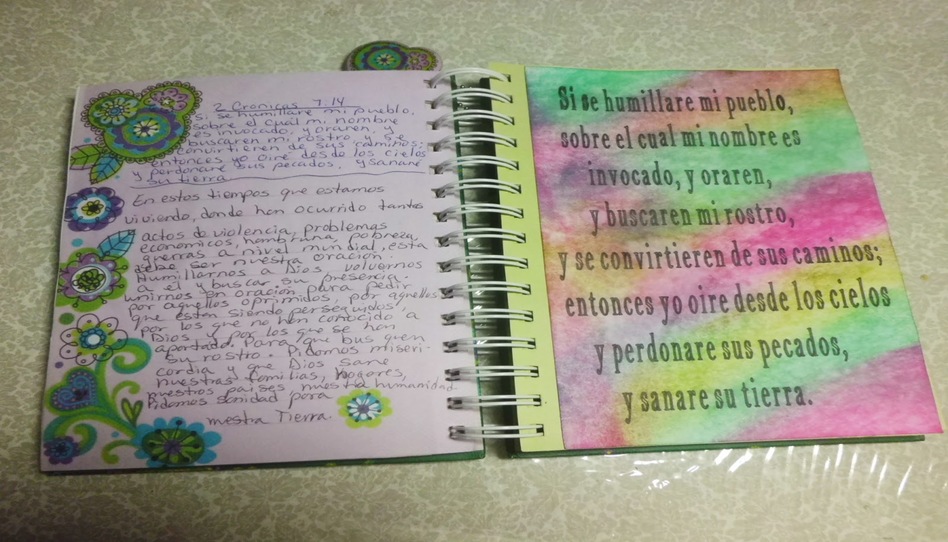 2 Cronicas 7:14
Si se humillare mi pueblo,
sobre el cual mi nombre
es invocado, y oraren, y
buscaren mi rostro, y se
convirtieren de sus caminos;
entonces yo oire desde los cielos
y perdonare sus pecados, y sanare
su tierra
En estos tiempos que estamos
viviendo, donde han ocurrido tantos
actos de violencia, problemas
economicos, hambruna, pobreza,
guerras a nivel mundial, esta
debe ser nuestra oracion.
Humillarnos a Dios, volvernos
a él y buscar su presencia
unirnos en oración para pedir
por aquellos oprimidos, por aquellos
que estén siendo perseguidos,
por los que no han conocido a
Dios y por los que se han
apartado. Para que busquen
su rostro. Pidamos miseri-
cordia y que Dios sane
nuestras familias, hogares,
nuestros paises, nuestra humanidad.
Pidamos sanidad para
nuestra Tierra.
Si se humillare mi pueblo,
sobre el cual mi nombre es
invocado, y oraren,
y buscaren mi rostro,
y se convirtieren de sus caminos;
entonces yo oire desde los cielos
y perdonare sus pecados,
y sanare su tierra.